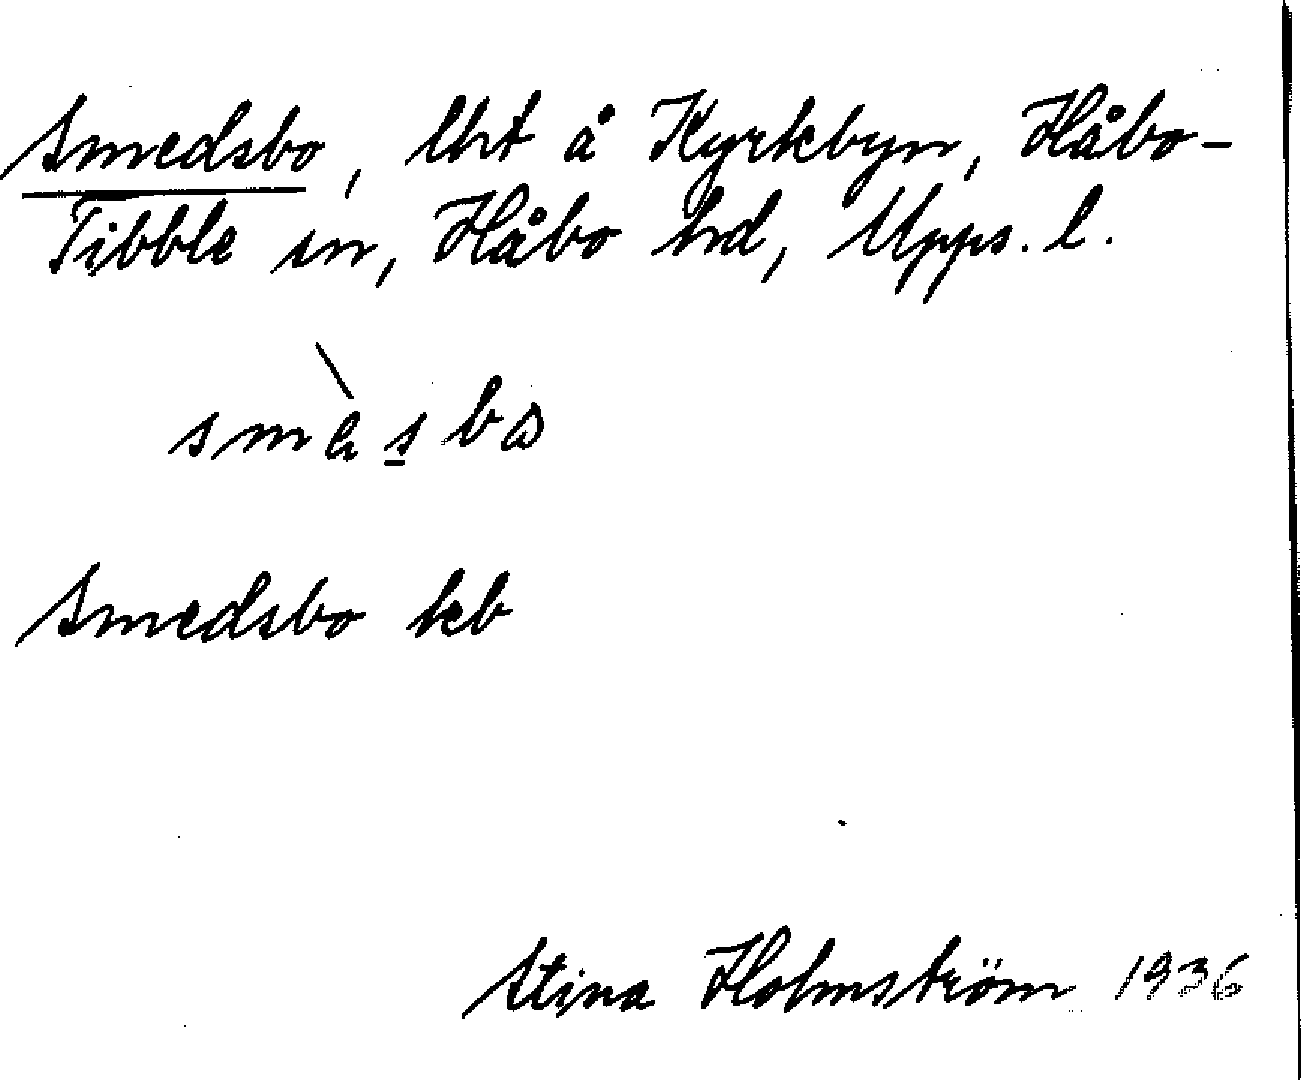 Smedsbo, lht å Kyrkbyn, Håbo-
Tibble sn, Håbo hd, Upps. l.
Smedsbo kb
Stina Holmström 1936